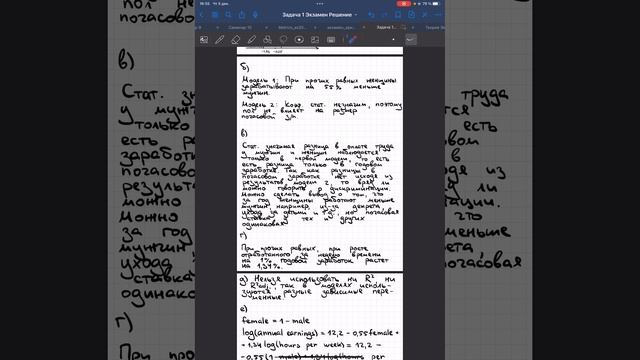 16:55 Чт 5 дек.
Задача 1 Экзамен Решение
79 %
Семинар 10
Задача 1...
б)
Модель 1: При прочих равных женщины
зарабатывают на 55% меньше
мужчин.
Модель 2: Коэф. стат. незначим, поэтому
пол не влияет на размер
почасовой з/п.
в)
Стат. значимая разница в оплате труда
у мужчин и женщин наблюдается
только в первой модели, то есть
есть разница только в годовом
заработке. Так как разницы в
почасовой заработке нет исходя из
результатов модели 2, то вряд ли
можно говорить о дискриминации.
Можно сделать вывод о том, что
за год женщины работают меньше
мужчин например из-за декрета
ухода за детьми и т.д., но почасовая
ставка у тех и других
одинаковая
г)
При прочих равных, при росте
отработанного за неделю времени
на 1% годовой заработок растет
на 1,34%.
д) Нельзя использовать ни R² ни
R²adj, так в моделях исполь-
зуются разные зависимые пере-
менные!
е)
female = 1 - male
log(annual earnings) = 12,2 - 0,55 female +
+ 1,34 log(hours per week) = 12,2 -
- 0,55(1 - male) + 1,34 log(hours per